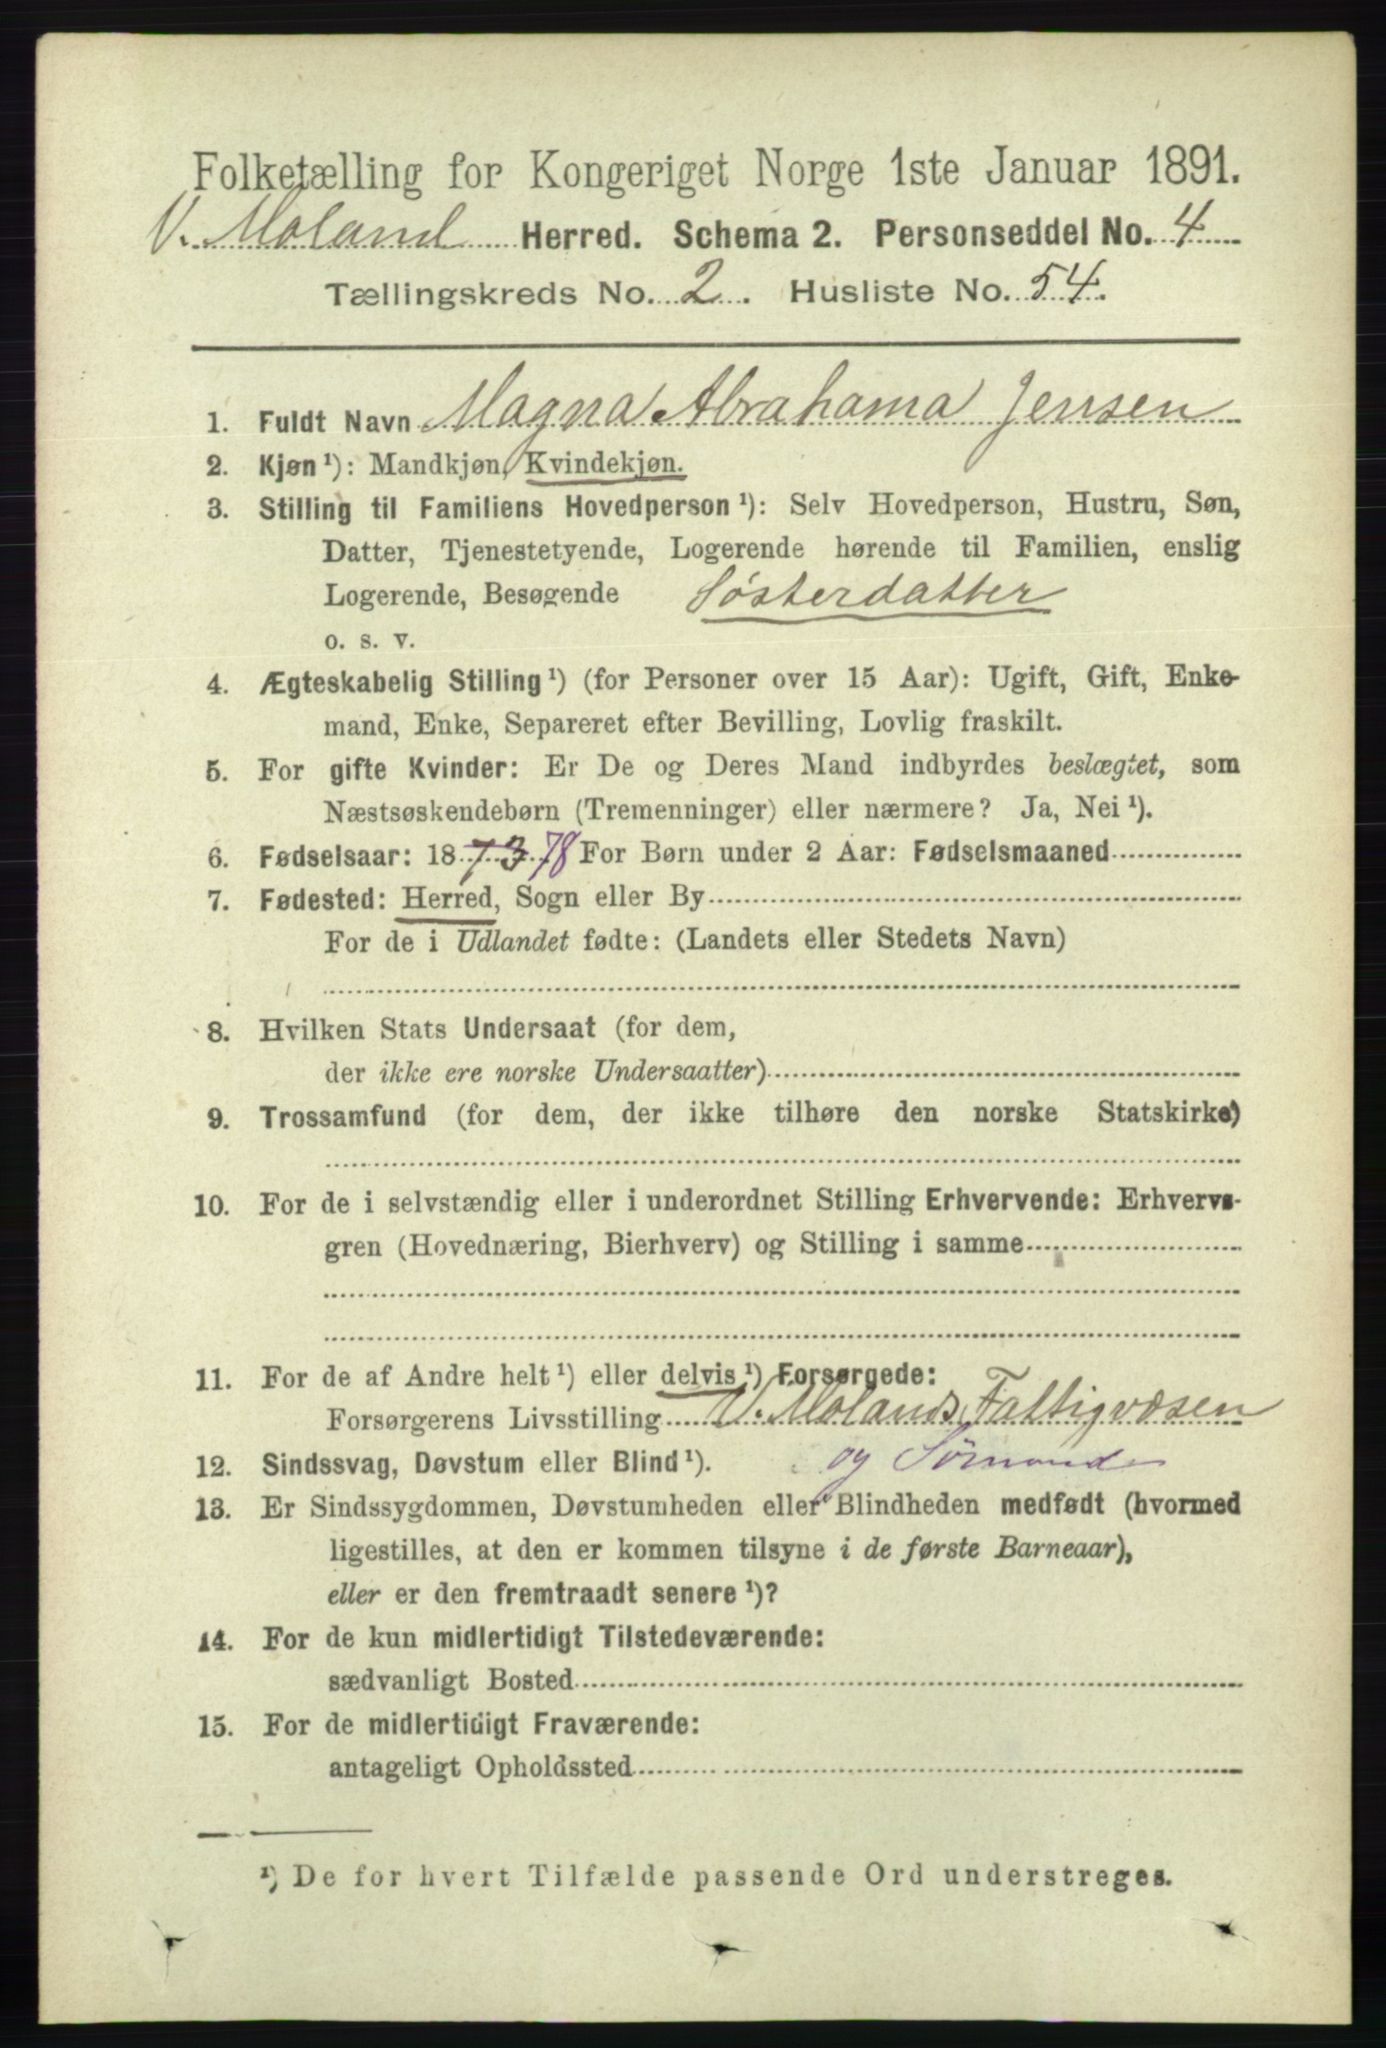 Folketælling for Kongeriget Norge 1ste Januar 1891.
V. Moland Herred. Schema 2. Personseddel No. 4
Tællingskreds No. 2. Husliste No. 54.
1. Fuldt Navn Magna Abrahama Jensen
2. Kjøn ¹): Mandkjøn, Kvindekjøn.
3. Stilling til Familiens Hovedperson ¹): Selv Hovedperson, Hustru, Søn,
Datter, Tjenestetyende, Logerende hørende til Familien, enslig
Logerende, Besøgende Søsterdatter
o. s. v.
4. Ægteskabelig Stilling ¹) (for Personer over 15 Aar): Ugift, Gift, Enke-
mand, Enke, Separeret efter Bevilling, Lovlig fraskilt.
5. For gifte Kvinder: Er De og Deres Mand indbyrdes beslægtet, som
Næstsøskendebørn (Tremenninger) eller nærmere? Ja, Nei ¹).
6. Fødselsaar: 18 73 78 For Børn under 2 Aar: Fødselsmaaned
7. Fødested: Herred, Sogn eller By
For de i Udlandet fødte: (Landets eller Stedets Navn)
8. Hvilken Stats Undersaat (for dem,
der ikke ere norske Undersaatter)
9. Trossamfund (for dem, der ikke tilhøre den norske Statskirke)
10. For de i selvstændig eller i underordnet Stilling Erhvervende: Erhvervs-
gren (Hovednæring, Bierhverv) og Stilling i samme
11. For de af Andre helt ¹) eller delvis ¹) Forsørgede:
Forsørgerens Livsstilling V. Molands Fattigvæsen
12. Sindssvag, Døvstum eller Blind ¹). og Sømand
13. Er Sindssygdommen, Døvstumheden eller Blindheden medfødt (hvormed
ligestilles, at den er kommen tilsyne i de første Barneaar),
eller er den fremtraadt senere ¹)?
14. For de kun midlertidigt Tilstedeværende:
sædvanligt Bosted
15. For de midlertidigt Fraværende:
antageligt Opholdssted
¹) De for hvert Tilfælde passende Ord understreges.